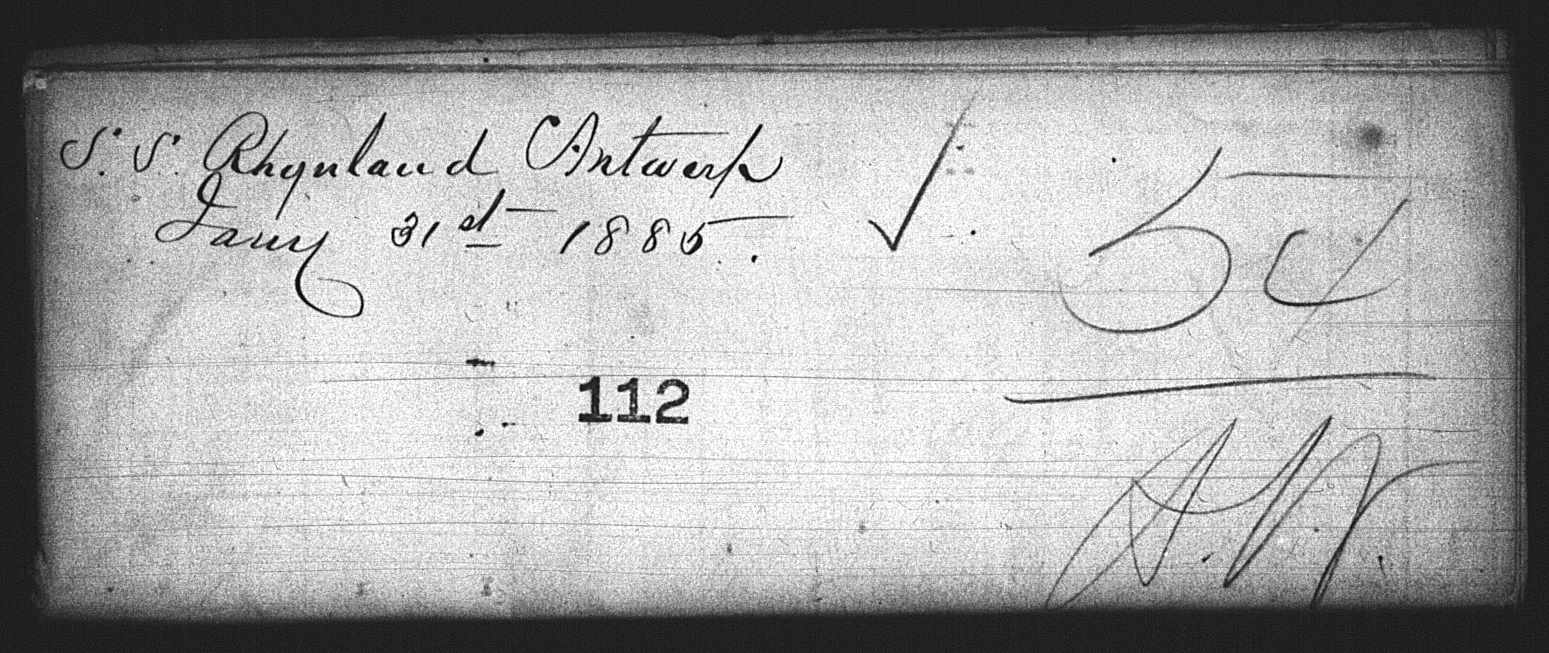 S. S. Rhynland Antwerp
Jany 31st 1885.
54
112